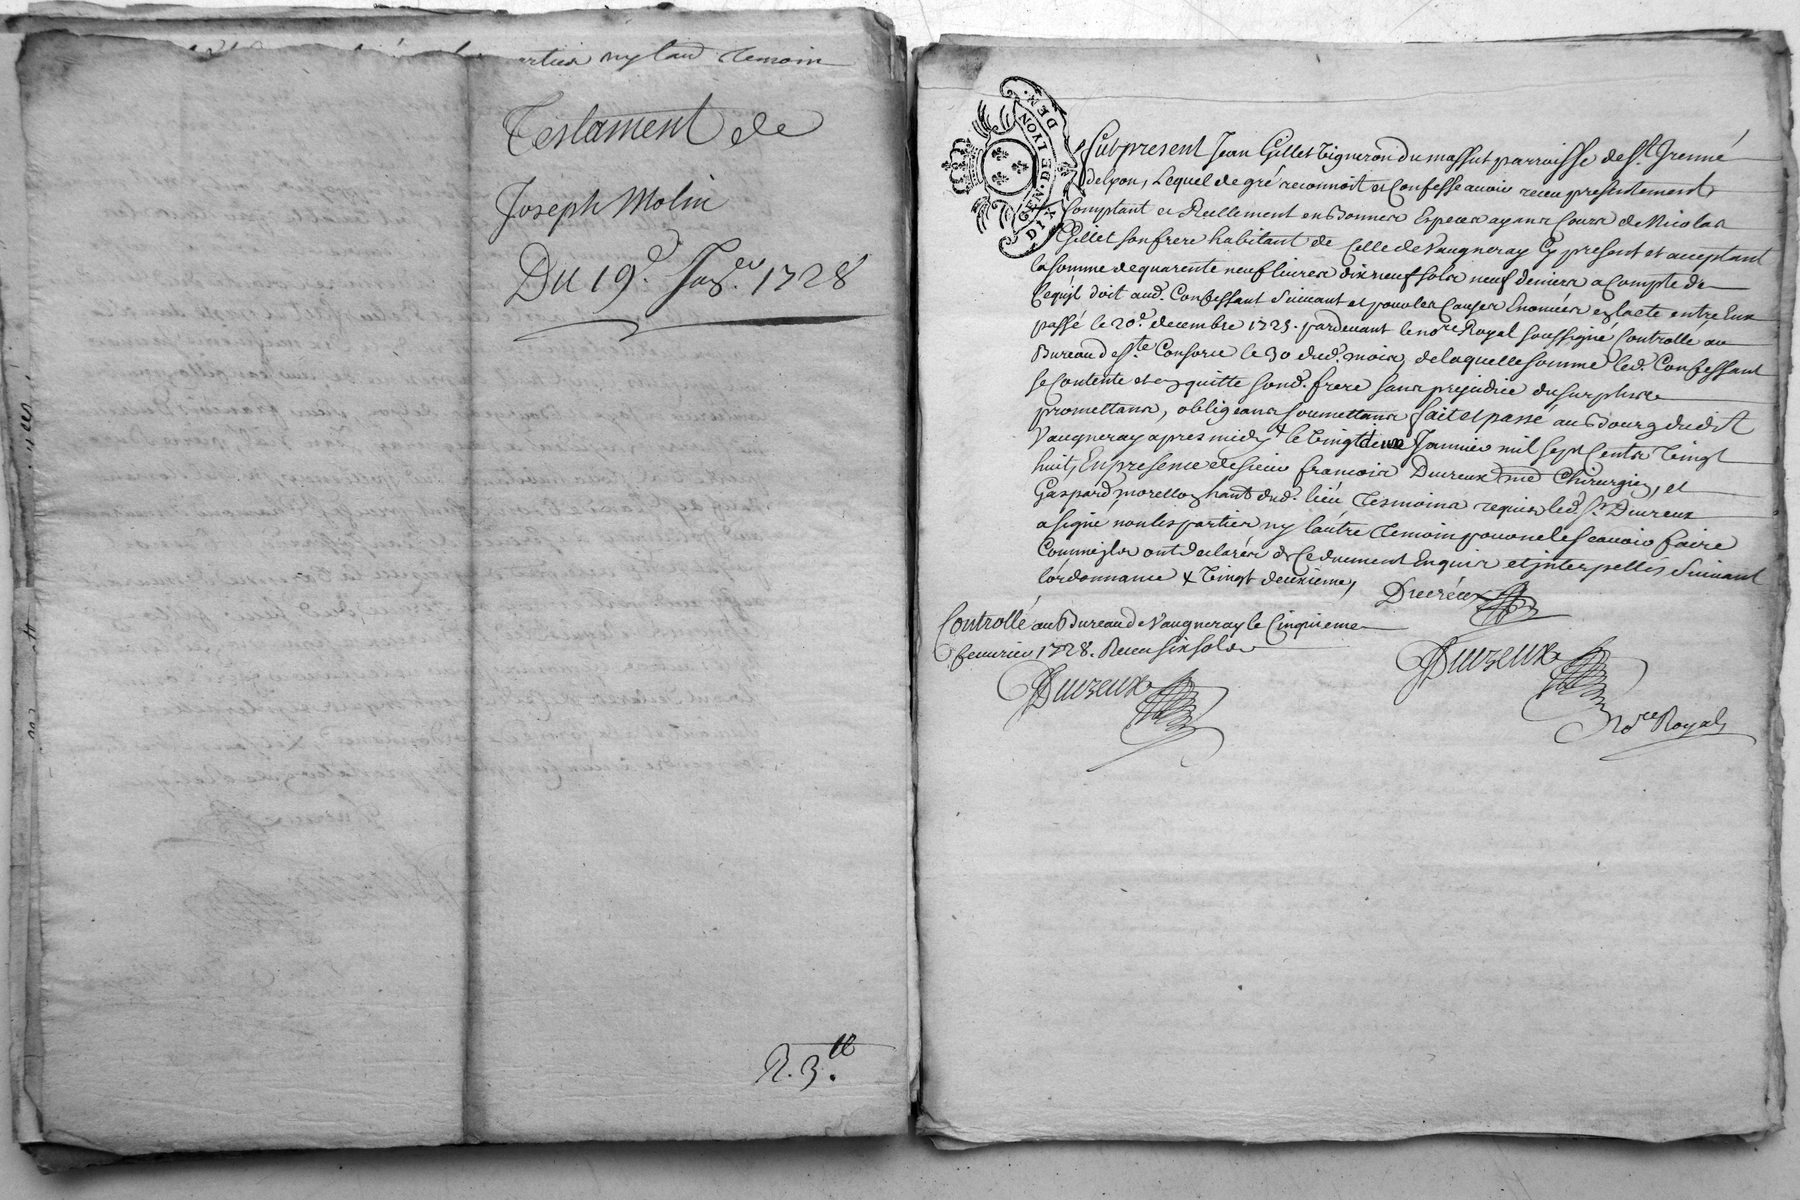 parties ny laud temoin
Testament de
Joseph Molin
Du 19e. Janv.er 1728
R. 3.tt
GEN. DE LYON
DIX DEN.
Fut present Jean Gillet Vigneron du massut parroisse de St. Irenné
delyon, Lequel de gré reconnoit et Confesse avoir receu presentement
Comptant et Reellement en bonnes Especes ayant Cours de Nicolas
Gillet son frere habitant de Celle de Vaugneray Cy present et acceptant
la somme de quarente neuf livres dix neuf sols neuf deniers a compte de
Ce qu'il doit aud. Confessant Suivant et pour les Causes Enoncées en lacte entre Eux
passé le 20e. decembre 1725. pardevant le no.re Royal soussigné Controllé au
Bureau de S.te Consorce le 30 dud. mois, de laquelle somme led. Confessant
se Contente et en quitte sond. frere sans prejudice du surplus
promettans, obligeans soumettans fait et passé au Bourg dudit
Vaugneray apres midy le Vingt deux Janvier mil sept Cents Vingt
huit, En presence de sieur francois Duvreux me Chirurgien, et
Gaspard morellon hant. dud. lieu Tesmoins requis led. Sr. Duvreux
a signé non les parties ny lautre temoin pour ne le scavoir faire
Comme ils ont declarés de Ce duement Enquis et interpellés Suivant
lordonnance + Vingt deuxieme,
Duvreux
Controllé au Bureau de Vaugneray le Cinquieme
fevrier 1728. Receu six sols
Duvreux
Duvreux
No.re Royal